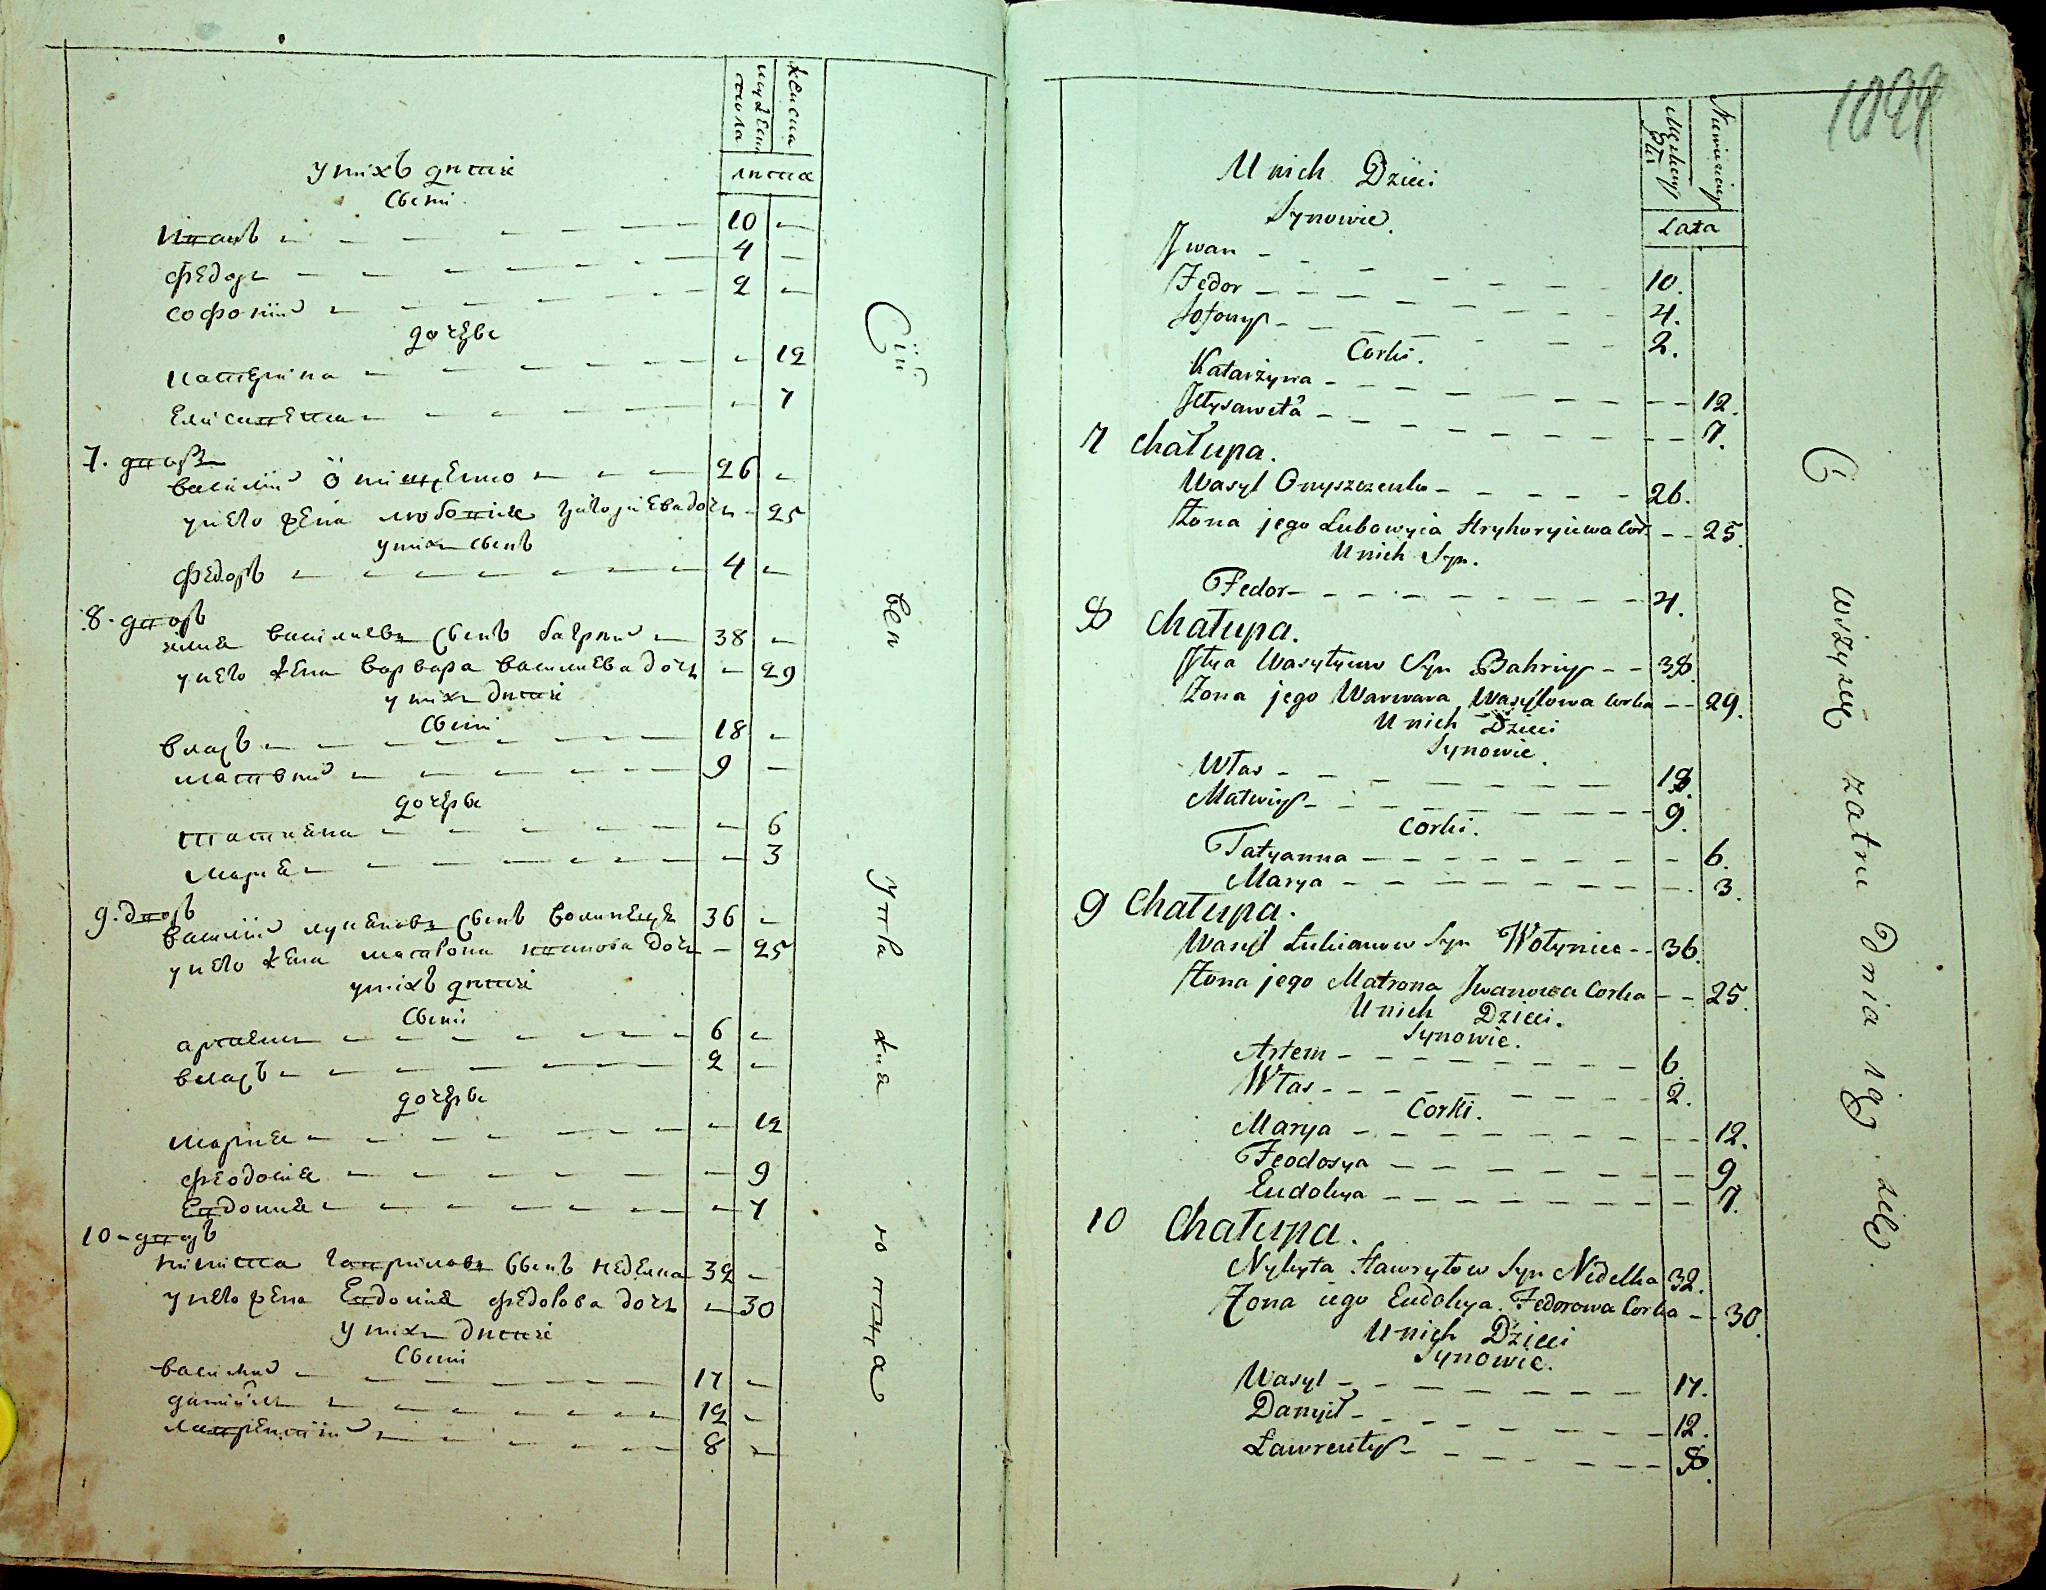 мужеска
пола
женска
лита
у нихъ дитei
сыни
Иванъ 10 —
Федоръ 4 —
Софоній 2 —
дочеры
Катерина — 12
Елисавета — 7
7. дворъ
Василій Онищенко 26 —
у него жена Любовия Григориева дочь — 25
у нихъ сынъ
Федоръ 4 —
8. дворъ
Илия Василиевъ сынъ Багрий 38 —
у него жена Варвара Василиева дочь — 29
у нихъ дитei
сыни
Власъ 18 —
Матвий 9 —
дочеры
Татияна — 6
Мария — 3
9. дворъ
Василий Лукяновъ сынъ Волинецъ 36 —
у него жена Матрона Иванова дочь — 25
у нихъ дитei
сыни
Артемъ 6 —
Власъ 2 —
дочеры
Мария — 12
Феодосия — 9
Евдокия — 7
10. дворъ
Никита Гавриловъ сынъ Неделка 32 —
у него жена Евдокия Федорова дочь — 30
у нихъ дитei
сыни
Василий 17 —
Даниилъ 12 —
Лаврентий 8 —
1099
Męzkiey
Płci
Niewiesciey
Lata
U nich Dzieci
Synowie.
Jwan 10.
Fedor 4.
Sofonyj 2.
Corki.
Katarzyna 12.
Jełysaweta 7.
7 Chałupa.
Wasyl Onyszczenko 26.
Zona jego Lubowyia Hryhoryiewa Cor. 25.
U nich Syn.
Fedor 4.
8 Chałupa.
Jłya Wasylyiew Syn Bahriy 38.
Zona jego Warwara Wasylowa Corka 29.
U nich Dzieci
Synowie.
Włas 18.
Matwiy 9.
Corki.
Tatyanna 6.
Marya 3.
9 Chałupa.
Wasyl Łukianow Syn Wołyniec 36.
Zona jego Matrona Jwanowa Corka 25.
U nich Dzieci.
Synowie.
Artem 6.
Włas 2.
Corki.
Marya 12.
Feodosya 9.
Eudokya 7.
10 Chałupa.
Nykyta Hawryłow Syn Nidelka 32.
Zona iego Eudokya Fedorowa Corka 30.
U nich Dzieci
Synowie.
Wasyl 17.
Danyił 12.
Ławrentyj 8.